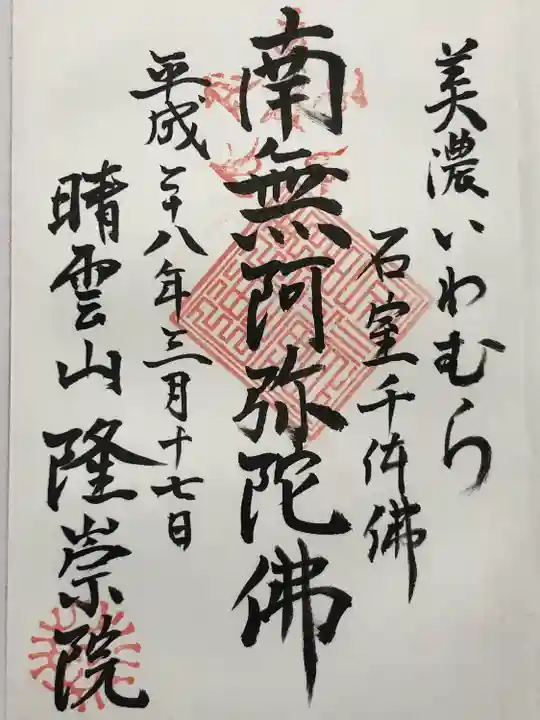 美濃いわむら
石室千体佛
南無阿弥陀佛
平成二十八年三月十七日
晴雲山 隆崇院